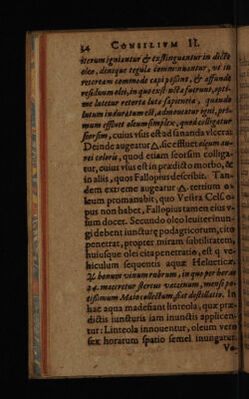 34 CONSILIVM II.
iterum igniantur & extinguantur in dicto
oleo, denique tegulæ comminuantur, vt in
retortam commode capi possint, & affunde
residuum olei, in quo extinctæ fuerunt, opti-
me lutetur retorta luto sapientiæ, quando
lutum induratum est, admoueatur igni, pri-
mum effluit oleum simplex, quod colligatur
seorsim, cuius vsus est ad sananda vlcera:
Deinde augeatur △. sic effluet oleum au-
rei coloris, quod etiam seorsim colliga-
tur, cuius vsus est in prædicto morbo, &
in aliis, quos Fallopius describit. Tan-
dem extreme augeatur △. tertium o-
leum promanabit, quo Vestra Celsi.
pus non habet, Fallopius tamen eius v-
sum docet. Secundo oleo leuiter inun-
gi debent iuncturę podagricorum, cito
penetrat, propter miram subtilitatem,
huiusque olei cita penetratio, est q ve-
hiculum sequentis aquæ Helueticæ.
℞ bonum vinum rubrum, in quo per horas
24. maceretur stercus vaccinum, mense po-
tissimum Maio collectum, fiat destillatio. In
hac aqua madefiant linteola, quæ præ-
dictis iuncturis iam inunctis applicen-
tur: Linteola innouentur, oleum vero
sex horarum spatio semel inungatur.